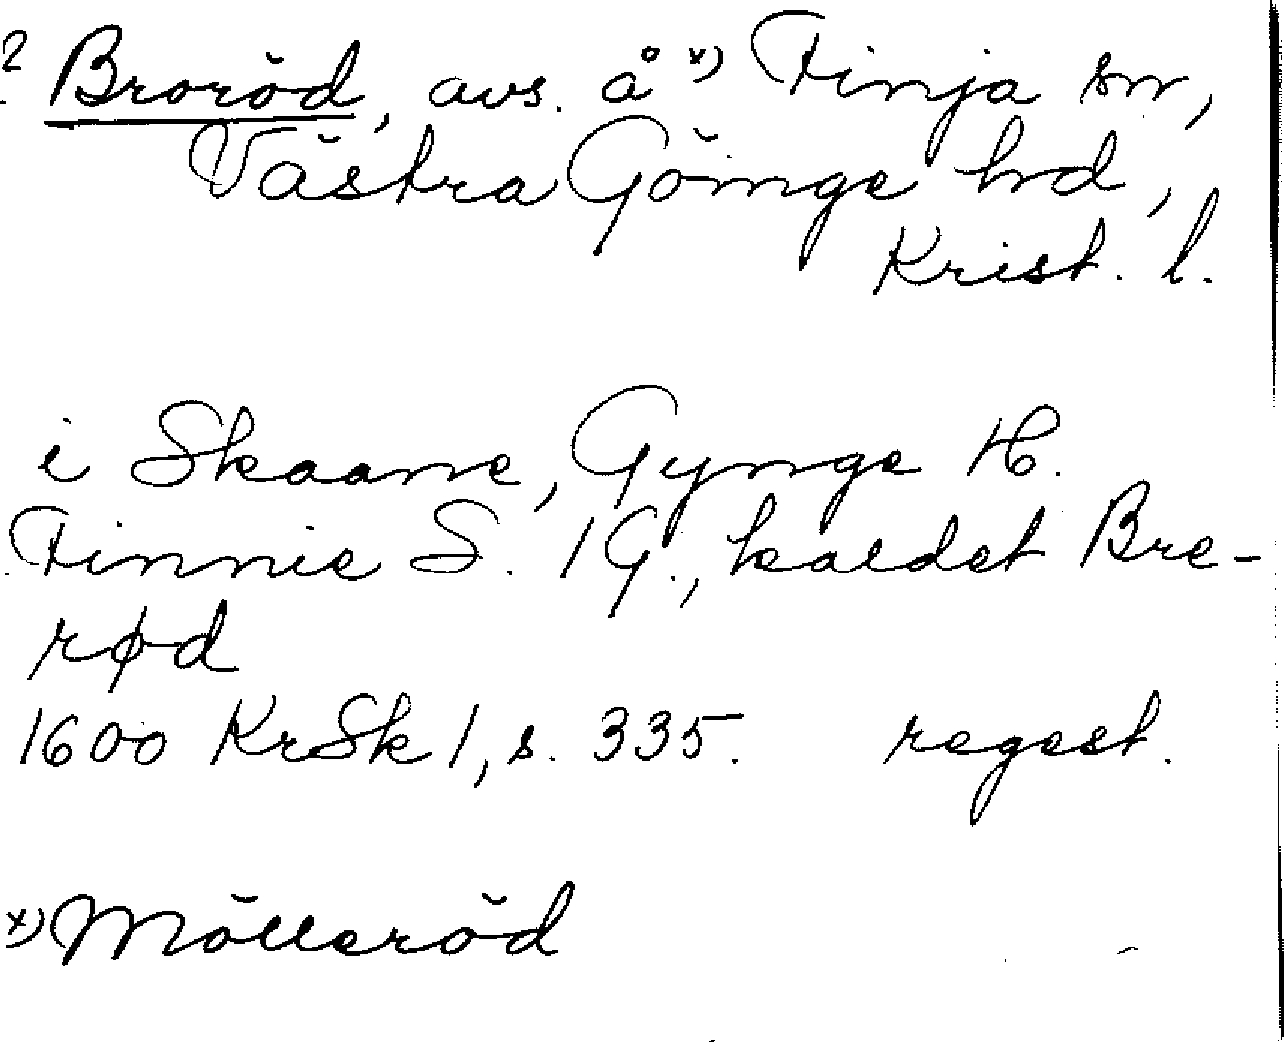 ? Broröd, avs. å x) Finja sn,
Västra Göinge hd,
Krist. l.
i Skaane, Gynge H.
Finnie S. 1 G., kaldet Bre-
rød
1600 KrSk 1, s. 335. regest.
x) Mölleröd